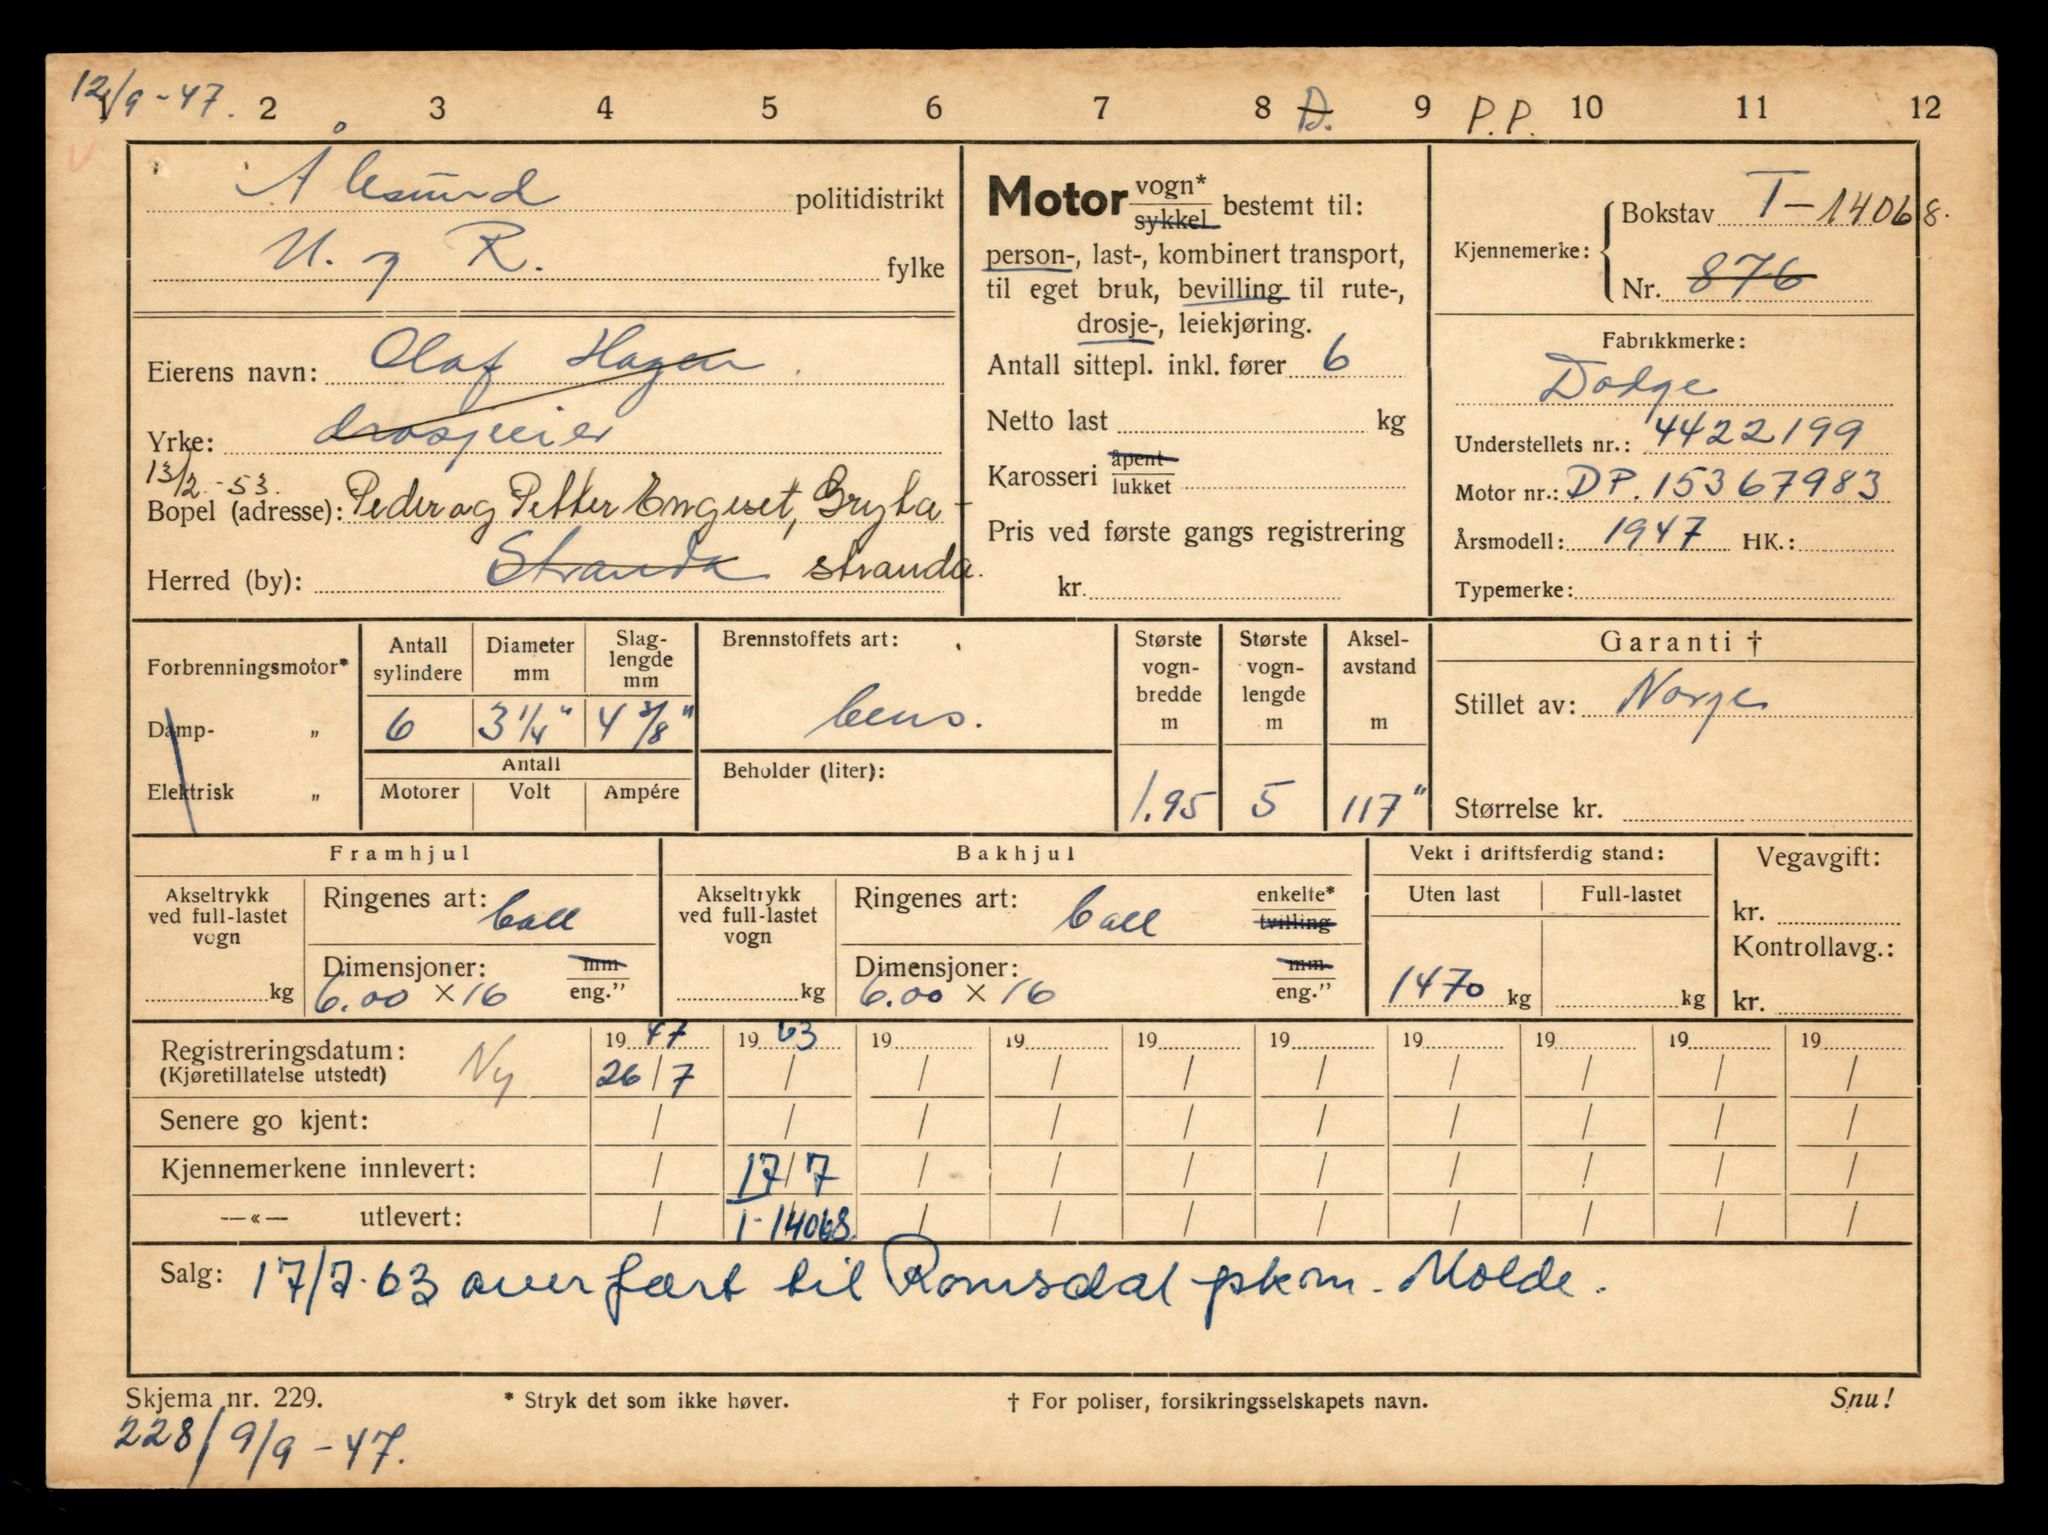 12/9-47. 2 3 4 5 6 7 8 D. 9 P.P. 10 11 12
Ålesund politidistrikt
M. og R. fylke
Eierens navn: Olaf Hagen
Yrke: drosjeeier
13/2-53.
Bopel (adresse): Peder og Petter Engeset, Gryta-
Herred (by): Stranda stranda.
Motor vogn* sykkel bestemt til:
person-, last-, kombinert transport,
til eget bruk, bevilling til rute-,
drosje-, leiekjøring.
Antall sittepl. inkl. fører 6
Netto last kg
Karosseri åpent lukket
Pris ved første gangs registrering
kr.
Kjennemerke: Bokstav T-14068.
Nr. 876
Fabrikkmerke:
Dodge
Understellets nr.: 4422199
Motor nr.: DP. 15367983
Årsmodell: 1947 HK.:
Typemerke:
Forbrenningsmotor*
Damp- „
Elektrisk „
Antall sylindere
6
Diameter mm
3 1/4"
Slag-
lengde
mm
4 3/8"
Antall
Motorer Volt Ampére
Brennstoffets art:
bens.
Beholder (liter):
Største
vogn-
bredde
m
1.95
Største
vogn-
lengde
m
5
Aksel-
avstand
m
117"
Garanti †
Stillet av: Norge
Størrelse kr.
Framhjul
Akseltrykk
ved full-lastet
vogn
kg
Ringenes art: ball
Dimensjoner: mm
6.00 × 16 eng."
Bakhjul
Akseltrykk
ved full-lastet
vogn
kg
Ringenes art: ball enkelte* tvilling
Dimensjoner: mm
6.00 × 16 eng."
Vekt i driftsferdig stand:
Uten last Full-lastet
1470 kg kg
Vegavgift:
kr.
Kontrollavg.:
kr.
Registreringsdatum: Ny 19 47 19 63 19 19 19 19 19 19 19 19
(Kjøretillatelse utstedt) 26/7 / / / / / / / / /
Senere go kjent: / / / / / / / / / /
Kjennemerkene innlevert: / 17/7 / / / / / / / /
—«— utlevert: / T-14068 / / / / / / / /
Salg: 17/7-63 overført til Romsdal pkm. Molde.
Skjema nr. 229. * Stryk det som ikke høver. † For poliser, forsikringsselskapets navn. Snu!
228/9/9-47.